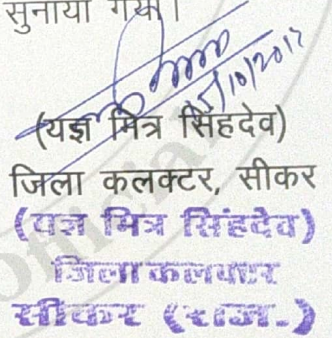 सुनाया गया।
25/10/2017
(यज्ञ मित्र सिंहदेव)
जिला कलक्टर, सीकर
(यज्ञ मित्र सिंहदेव)
जिला कलक्टर
सीकर (राज.)